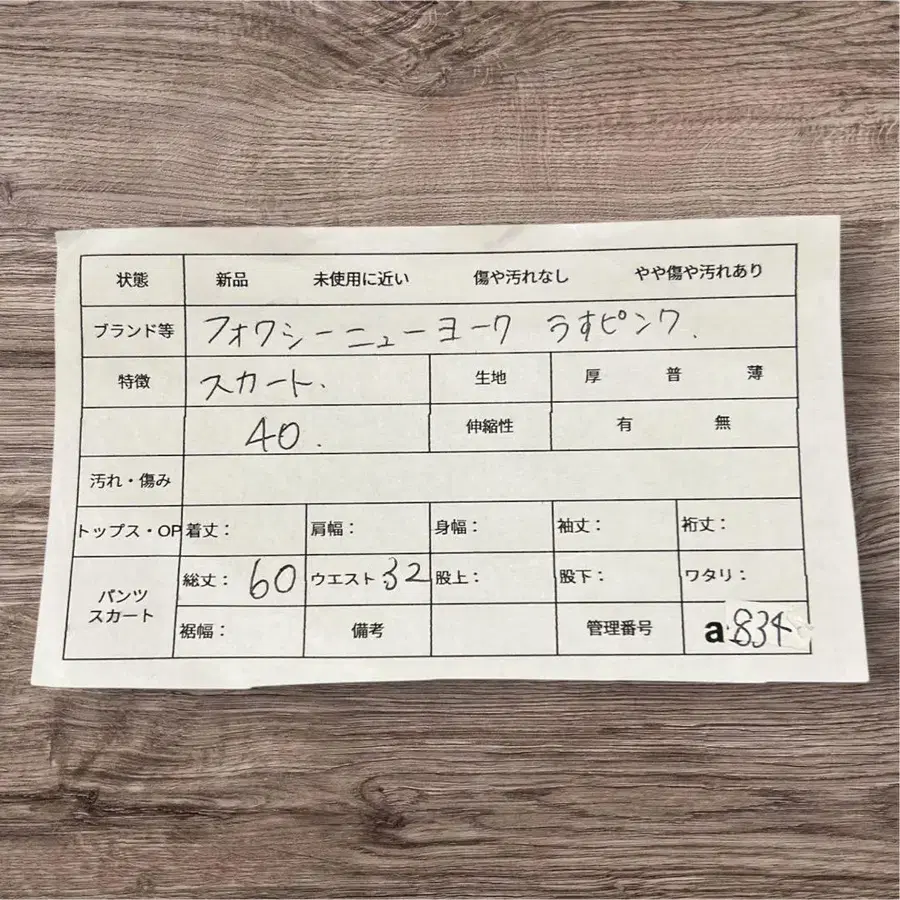 状態 新品 未使用に近い 傷や汚れなし やや傷や汚れあり
ブランド等 フォワシーニューヨーク うすピンク.
特徴 スカート. 生地 厚 普 薄
40. 伸縮性 有 無
汚れ・傷み
トップス・OP 着丈： 肩幅： 身幅： 袖丈： 裄丈：
パンツ スカート 総丈：60 ウエスト：32 股上： 股下： ワタリ：
裾幅： 備考 管理番号 a 834